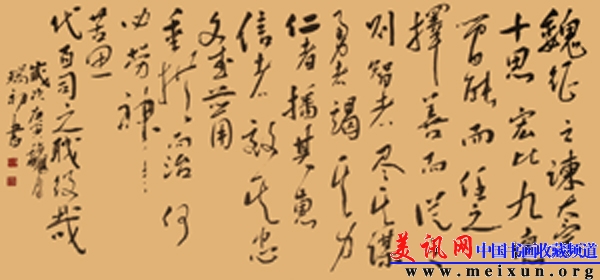 魏征之諫太宗
十思宏此九德
簡能而任之
擇善而從之
則智者盡其謀
勇者竭其力
仁者播其惠
信者效其忠
文武並用
垂拱而治何
必勞神
苦思
代百司之職役哉
歲次庚寅 月
书
美讯网 中国书画收藏频道
www.meixun.org